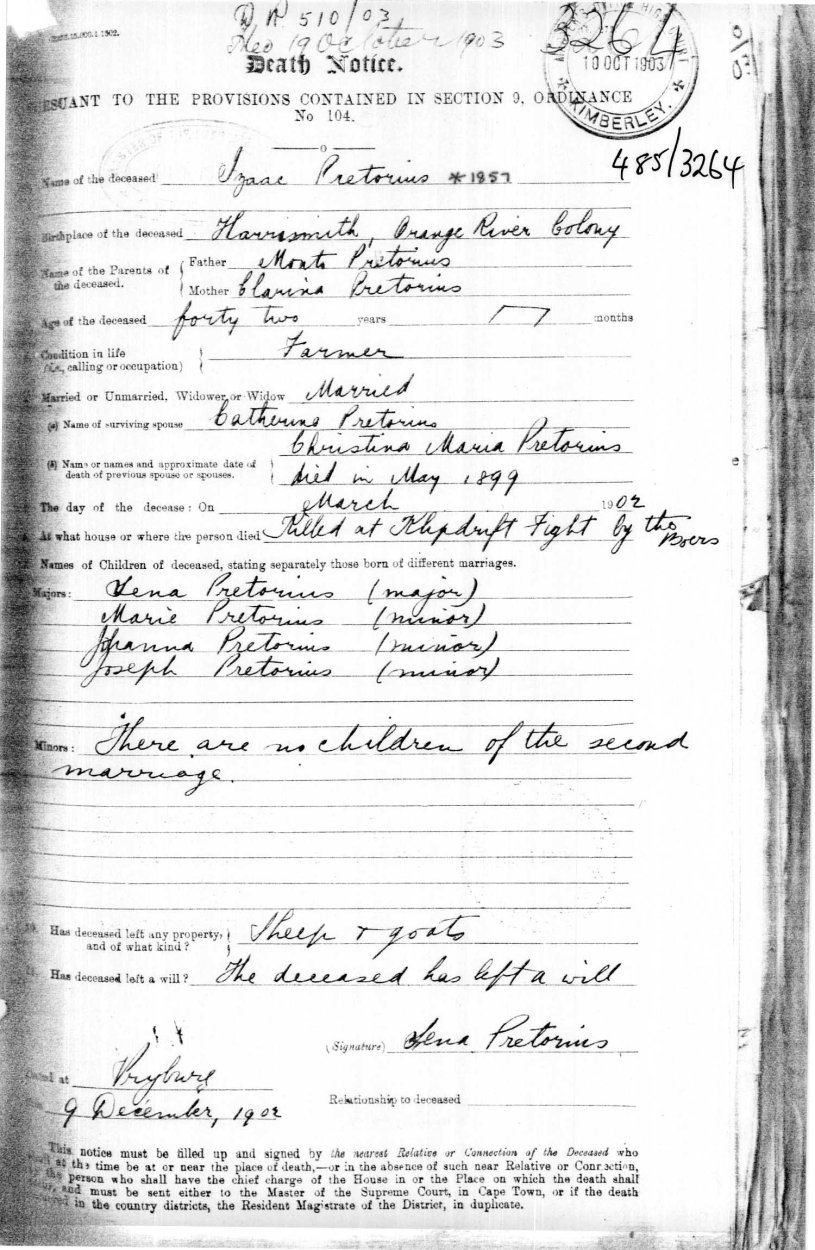 D N 510/03
19 October 1903
3264
10 OCT 1903
KIMBERLEY.
Death Notice.
PURSUANT TO THE PROVISIONS CONTAINED IN SECTION 9, ORDINANCE
No 104.
o
485/3264
Name of the deceased Izaac Pretorius *1857
Birthplace of the deceased Harrismith, Orange River Colony
Name of the Parents of the deceased. Father Monts Pretorius
Mother Clarina Pretorius
Age of the deceased forty two years months
Condition in life (i.e., calling or occupation) Farmer
Married or Unmarried, Widower, or Widow Married
(a) Name of surviving spouse Catherina Pretorius
Christina Maria Pretorius
(b) Name or names and approximate date of death of previous spouse or spouses. died in May 1899
The day of the decease: On March 1902
At what house or where the person died Killed at Klipdrift Fight by the Boers
Names of Children of deceased, stating separately those born of different marriages.
Majors: Lena Pretorius (major)
Marie Pretorius (minor)
Johanna Pretorius (minor)
Joseph Pretorius (minor)
Minors: There are no children of the second
marriage.
Has deceased left any property, and of what kind? Sheep & goats
Has deceased left a will? The deceased has left a will
(Signature) Lena Pretorius
Dated at Vryburg
Relationship to deceased
9 December, 1902
This notice must be filled up and signed by the nearest Relative or Connection of the Deceased who
shall at the time be at or near the place of death,—or in the absence of such near Relative or Connection,
the person who shall have the chief charge of the House in or the Place on which the death shall
and must be sent either to the Master of the Supreme Court, in Cape Town, or if the death
in the country districts, the Resident Magistrate of the District, in duplicate.